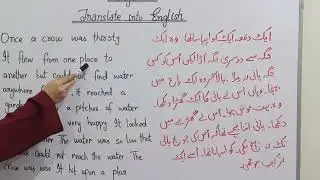 Translate into English
Once a crow was thirsty
It flew from one place to
another but could not find water
anywhere it reached a
garden a pitcher of water
very happy It looked
The water was so low that
could not reach the water. The
crow was It hit upon a plan
ایک دفعہ ایک کوا پیاسا تھا وہ ایک
جگہ سے دوسری جگہ اڑا لیکن اس کو کہیں
پانی نہ ملا۔ بالآخر وہ ایک باغ میں
پہنچا۔ وہاں پانی کا ایک گھڑا
وہ بہت خوش ہوا۔ اس نے گھڑے میں
دیکھا۔ پانی اتنا نیچے تھا کہ کوا پانی
تک نہ پہنچ سکا۔ کوا تھا۔ اسے ایک
ترکیب سوجھی۔